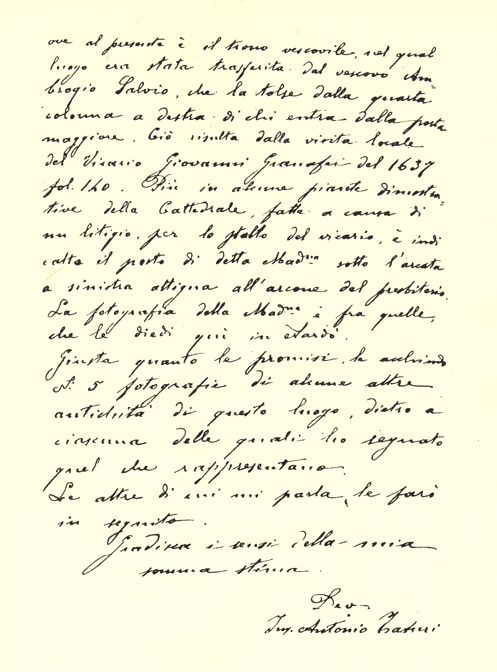 ove al presente è il trono vescovile, nel qual
luogo era stata trasferita dal vescovo Am
brogio Salvio, che la tolse dalla quarta
colonna a destra di chi entra dalla porta
maggiore. Ciò risulta dalla visita locale
del Vicario Giovanni Granafei del 1637
fol. 140. Più in alcune piante dimostra=
tive della Cattedrale, fatte a causa di
un litigio, per lo stallo del vicario, è indi
cato il posto di detta Madna sotto l'arcata
a sinistra attigua all'arcone del presbiterio.
La fotografia della Madna è fra quelle,
che le diedi qui in Nardò.
Giusta quanto le promisi, le acchiudo
N. 5 fotografie di alcune altre
antichità di questo luogo, dietro a
ciascuna delle quali ho segnato
quel che rappresentano.
Le altre di cui mi parla, le farò
in seguito.
Gradisca i sensi della mia
somma stima.
Devo
Ing. Antonio Tafuri